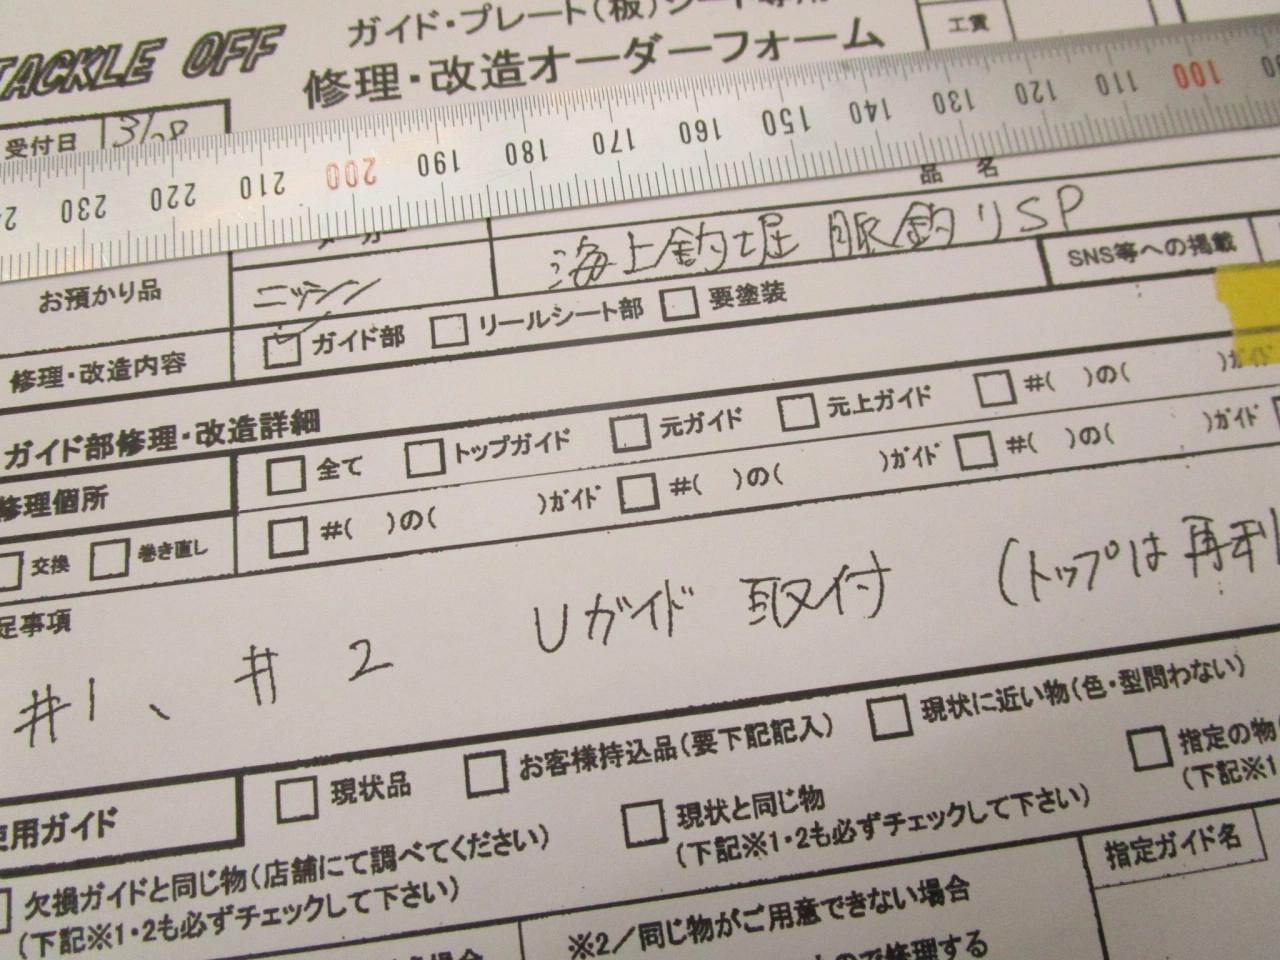 TACKLE OFF
ガイド・プレート(板)シート専用
修理・改造オーダーフォーム
工賃
受付日
230 220 210 200 190 180 170 160 150 140 130 120 110 100
メーカー
品名
お預かり品
ニッシン
海上釣堀 脈釣りSP
SNS等への掲載
修理・改造内容
ガイド部
リールシート部
要塗装
ガイド部修理・改造詳細
修理個所
全て
トップガイド
元ガイド
元上ガイド
#( )の( )ガイド
交換
巻き直し
#( )の( )ガイド
#( )の( )ガイド
#( )の( )ガイド
足事項
#1、#2 Uガイド 取付 (トップは再利
使用ガイド
現状品
お客様持込品(要下記記入)
現状に近い物(色・型問わない)
欠損ガイドと同じ物(店舗にて調べてください)
(下記※1・2も必ずチェックして下さい)
現状と同じ物
(下記※1・2も必ずチェックして下さい)
指定の物
(下記※1
指定ガイド名
※2/同じ物がご用意できない場合
ので修理する